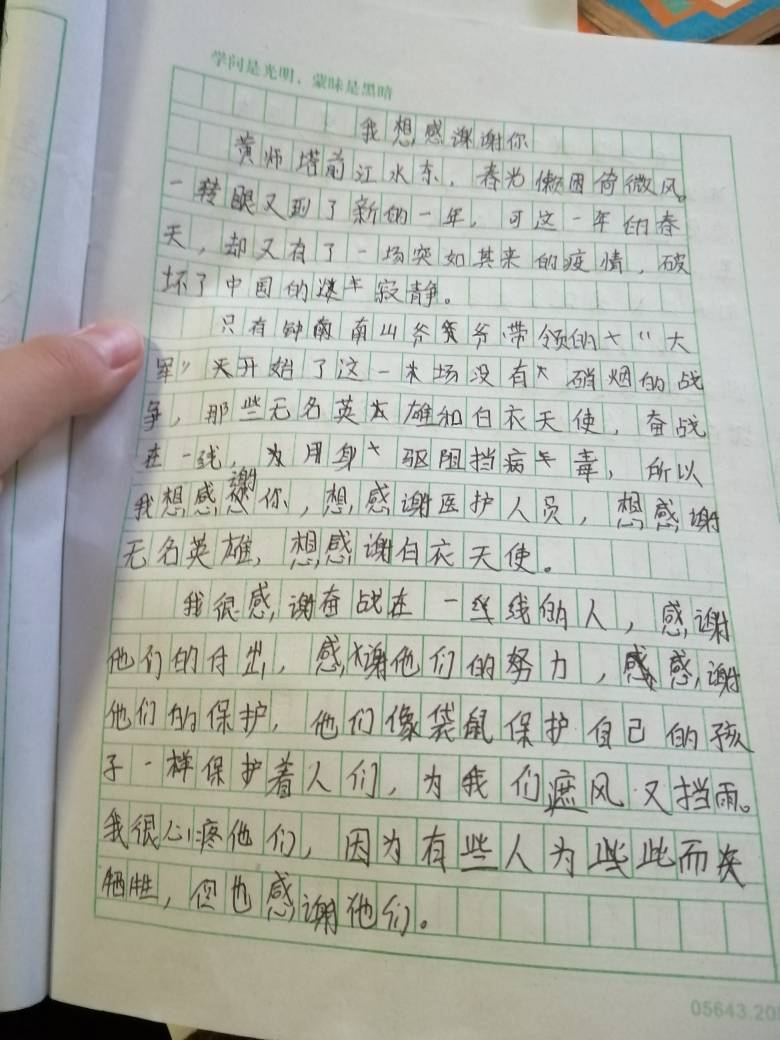 学问是光明，蒙昧是黑暗
我想感谢谢你
黄师塔前江水东，春光懒困倚微风。
一转眼又到了新的一年，可这一年的春
天，却又有了一场突如其来的疫情，破
坏了中国的寂静。
只有钟南山爷爷带领的“大
军”开始了这一场没有硝烟的战
争，那些无名英雄和白衣天使，奋战
在一线，用身驱阻挡病毒，所以
我想感谢你，想感谢医护人员，想感谢
无名英雄，想感谢白衣天使。
我很感谢奋战在一线的人，感谢
他们的付出，感谢他们的努力，感谢
他们的保护，他们像袋鼠保护自己的孩
子一样保护着人们，为我们遮风又挡雨。
我很心疼他们，因为有些人为此而失
牺牲，但也感谢他们。
05643.20